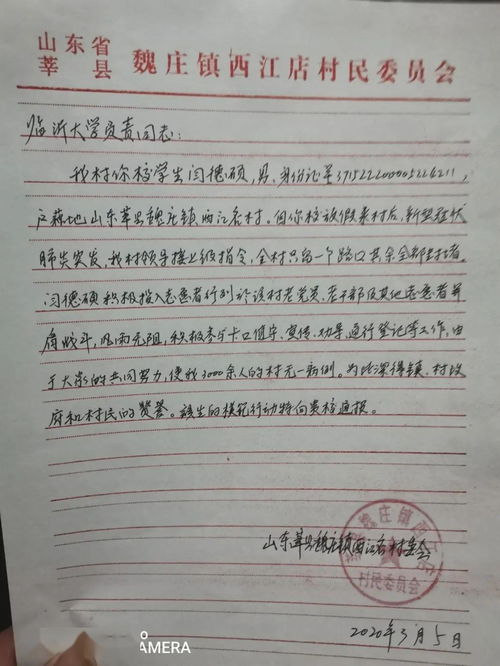 山东省
莘县
魏庄镇西江店村民委员会
临沂大学负责同志：
我村你校学生闫德硕，男，身份证号371522200005224211，
户籍地山东莘县魏庄镇西江店村。自你校放假来村后，新型冠状
肺炎突发，我村领导接上级指令，全村只留一个路口其余全部封堵。
闫德硕积极投入志愿者行列於该村老党员、老干部及其他志愿者并
肩战斗，风雨无阻，积极参与卡口值守、宣传、劝导、通行登记等工作，由
于大家的共同努力，使我3000余人的村无一病例。为此深得镇、村政
府和村民的赞誉。该生的模范行动特向贵校通报。
山东莘县魏庄镇西江店村委会
村民委员会
2020年3月5日
AMERA